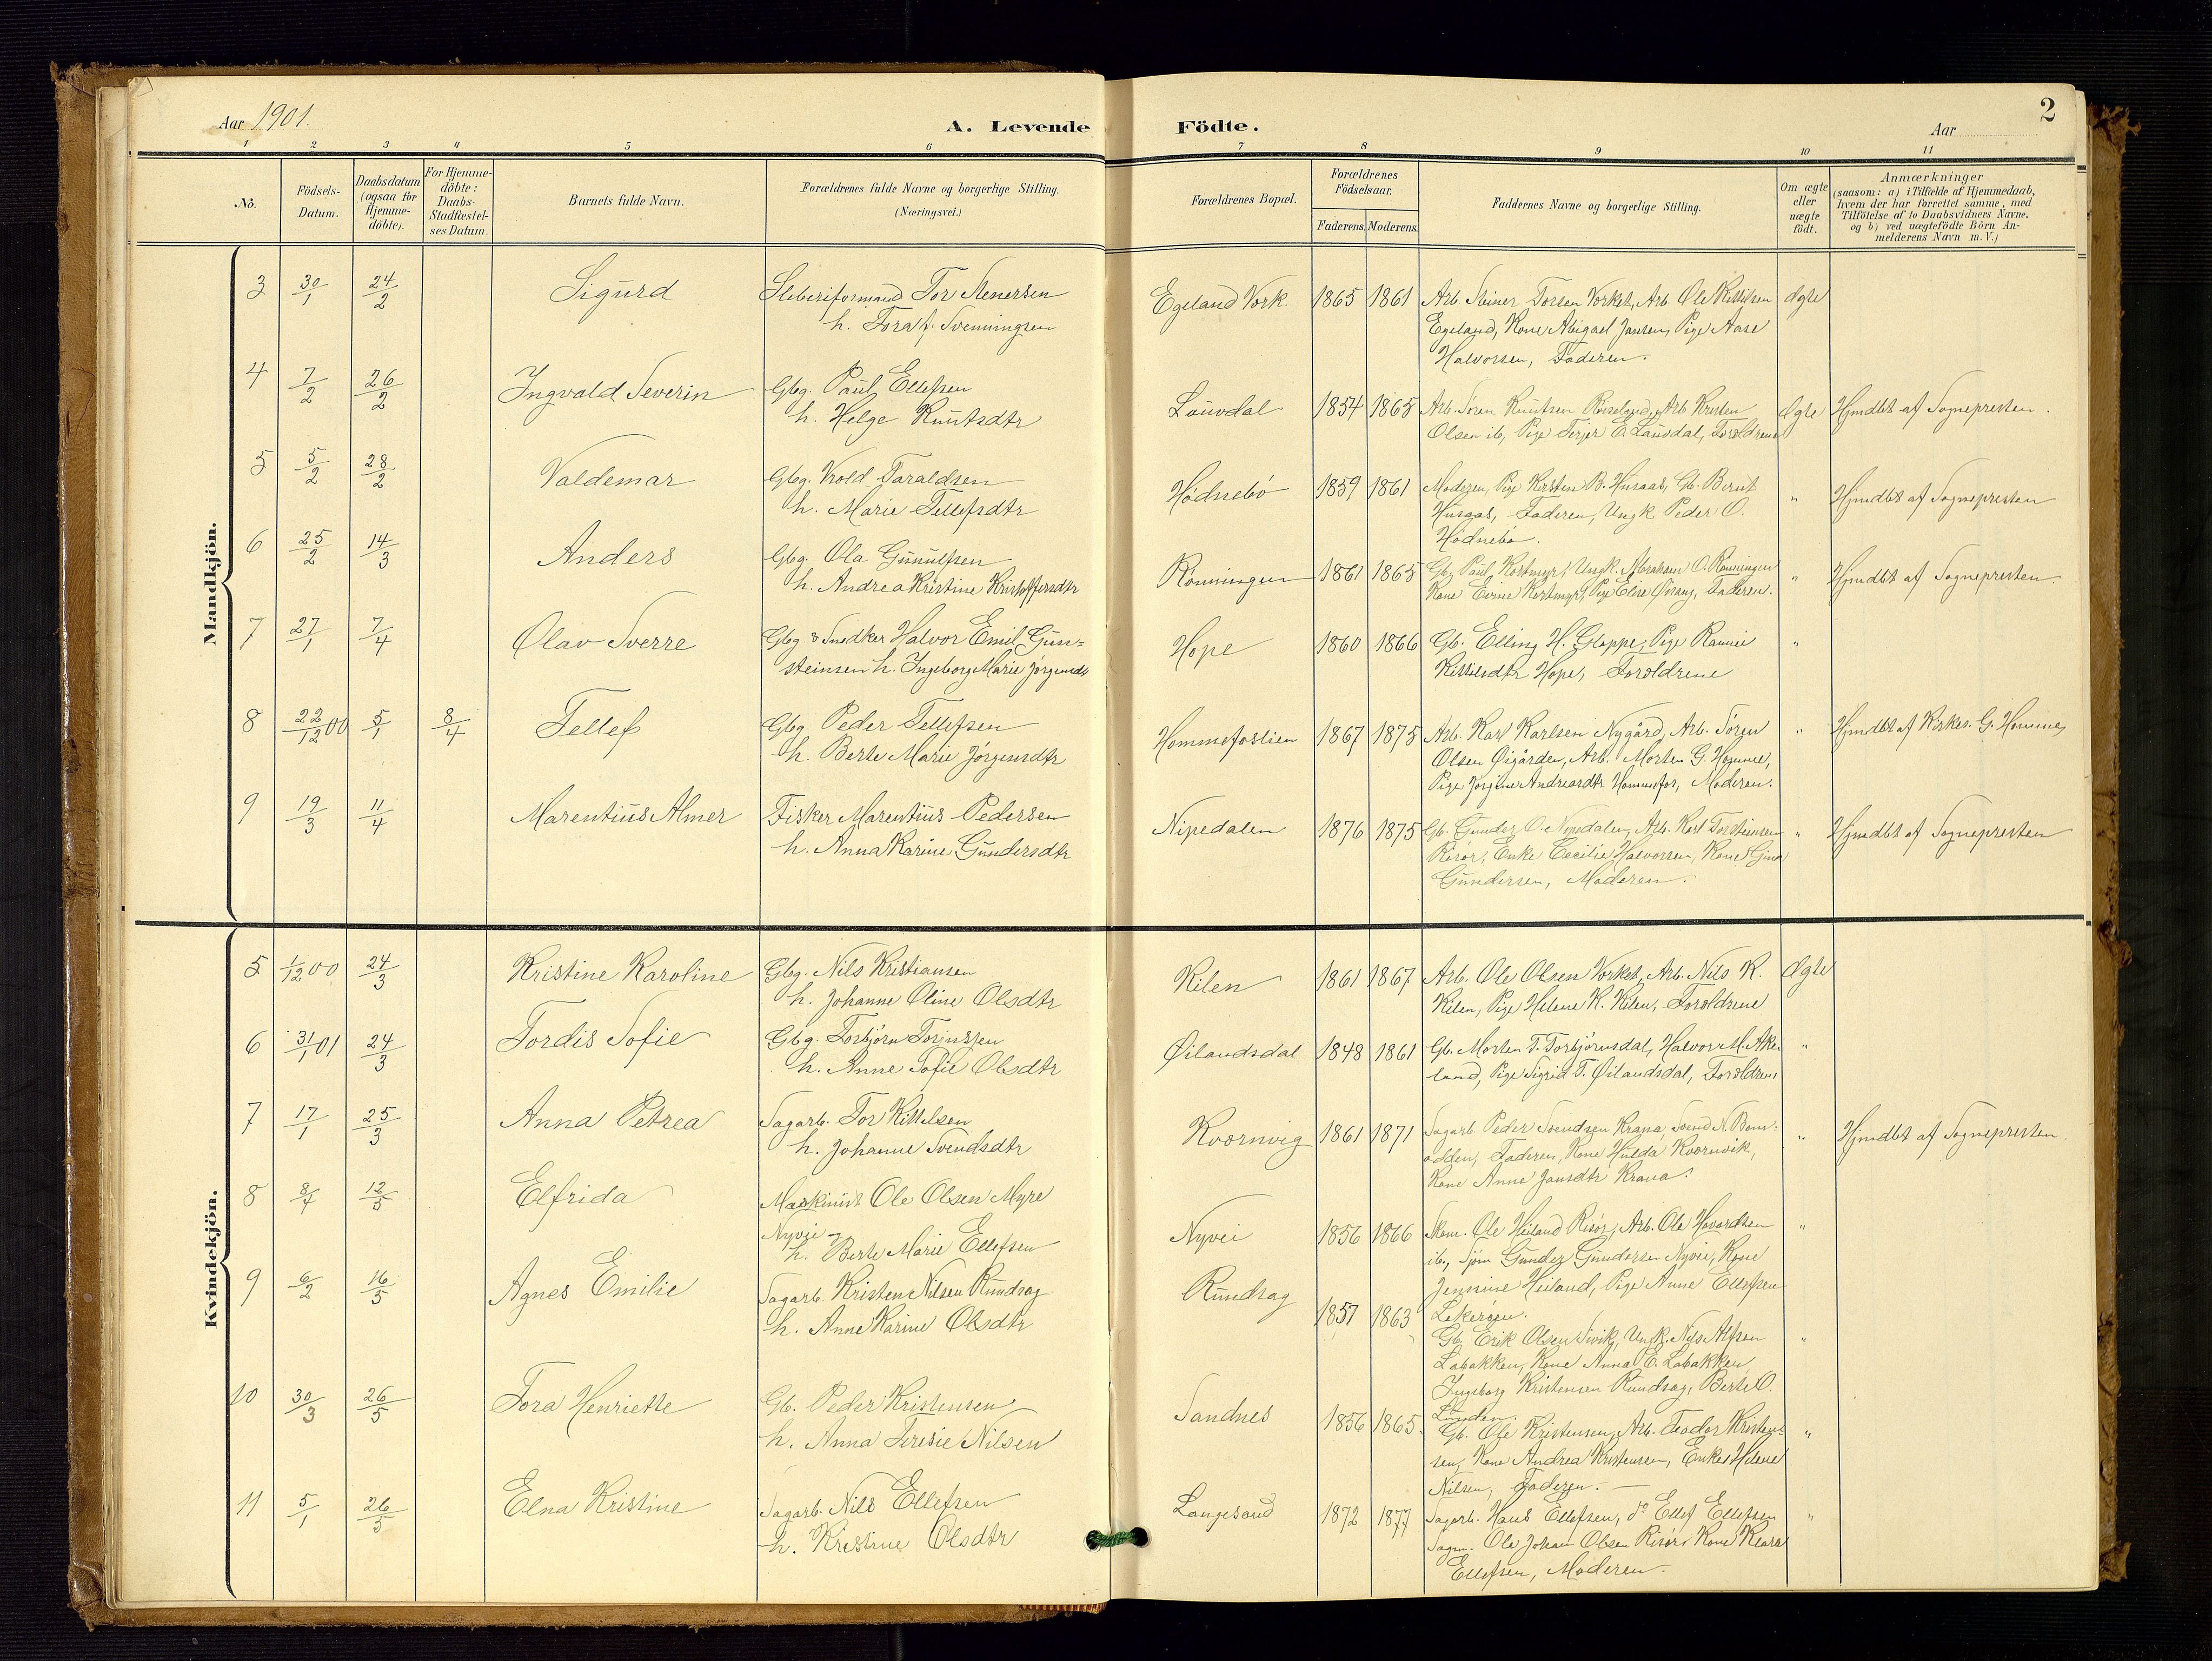 Aar 1901.
A. Levende Födte.
Aar
2
1 2 3 4 5 6 7 8 9 10 11
No.
Födsels-Datum.
Daabsdatum (ogsaa for Hjemme-döbte).
For Hjemme-döbte: Daabs-Stadfæstel-ses Datum.
Barnets fulde Navn.
Forældrenes fulde Navne og borgerlige Stilling.
(Næringsvei.)
Forældrenes Bopæl.
Forældrenes Födselsaar.
Faderens. Moderens.
Faddernes Navne og borgerlige Stilling.
Om ægte eller uægte födt.
Anmærkninger
(saasom: a) i Tilfælde af Hjemmedaab,
hvem der har forrettet samme, med
Tilföielse af to Daabsvidners Navne,
og b) ved uægtefödte Börn An-
melderens Navn m. V.)
Mandkjön.
3 30/1 24/2 Sigurd Sleberiformand Tor Stenersen
h. Tora f. Svenningsen
Egeland Verk 1865 1861 Arb. Steiner Torsen Verket, Arb. Ole Kittilsen
Egeland, Kone Abigael Jansen, Pige Aase
Halvorsen, Faderen.
Ægte
4 7/2 26/2 Ingvald Severin Gbg. Paul Ellefsen
h. Helge Knutsdtr
Lauvdal 1854 1865 Arb. Søren Knutsen Røiseland, Arb. Kristen
Olsen ib, Pige Terjer E. Lauvdal, Forældrene
Ægte Hjmdbt af Sognepresten.
5 5/2 28/2 Valdemar Gbg. Vrold Taraldsen
h. Marie Tellefsdtr
Hødnebø 1859 1861 Moderen, Pige Kirsten B. Husaas, Gb. Berent
Husaas, Faderen, Ungk. Peder O.
Hødnebø.
" Hjmdbt af Sognepresten
6 25/2 14/3 Anders Gbg. Ola Gunulfsen
h. Andrea Kristine Kristoffersdtr
Rønningen 1861 1865 Gb. Paul Kortmyr, Ungk. Abraham O. Rønningen
Kone Evine Kortmyr, Pige Elise Øisang, Faderen.
" Hjmdbt af Sognepresten.
7 27/1 7/4 Olav Sverre Gbg & Snedker Halvor Emil Gun=
steinsen h. Ingeborg Marie Jørgensdt
Hope 1860 1866 Gb. Elling H. Gloppe, Pige Rannei
Kittilsdtr Hope, Forældrene
"
8 22/12 00 5/1 8/4 Tellef Gbg. Peder Tellefsen
h. Berte Marie Jørgensdtr
Hommefoslien 1867 1875 Arb. Karl Karlsen Nygård, Arb. Søren
Olsen Øigården, Arb. Morten G. Homme,
Pige Jørgine Andreasdtr Hommefos, Moderen.
" Hjmdbt af Kirkes. G. Homme
9 19/3 11/4 Marentius Almer Fisker Marentius Pedersen
h. Anna Karine Gundersdtr
Nipedalen 1876 1875 Gb. Gunder O. Nipedalen, Arb. Karl Torsteinsen
Risør, Enke Cecilie Halvorsen, Kone Gina
Gundersen, Moderen.
" Hjmdbt af Sognepresten
Kvindekjön.
5 1/12 00 24/3 Kristine Karoline Gbg. Nils Kristiansen
h. Johanne Oline Olsdtr
Kilen 1861 1867 Arb. Ole Olsen Verket, Arb. Nils K.
Kilen, Pige Helene K. Kilen, Forældrene
Ægte
6 31/1 01 24/3 Tordis Sofie Gbg. Torbjørn Torjussen
h. Anne Sofie Olsdtr
Øilandsdal 1848 1861 Gb. Morten T. Torbjørnsdal, Halvor M. Ake-
land, Pige Sigrid T. Øilandsdal, Forældrene
"
7 17/1 25/3 Anna Petrea Sagarb. Tor Kittelsen
h. Johanne Svendsdtr
Kvernvig 1861 1871 Sagarb. Peder Svendsen Krana, Svend N. Bom-
odden, Faderen, Kone Hulda Kvernvik,
Kone Anne Jansdtr Krana.
" Hjmdbt af Sognepresten.
8 8/4 12/5 Elfrida Maskinist Ole Olsen Myre
Nyvei
h. Berte Marie Ellefsen
Nyvei 1856 1866 Ole Heiland Risør, Arb. Ole Hovardsen
ib., Sjøm Gunder Gundersen Nyvei, Kone
Jennine Heiland, Pige Anne Ellefsen
"
9 6/2 16/5 Agnes Emilie Sagarb. Kristen Nilsen Rundsag
h. Anne Karine Olsdtr
Rundsag 1857 1863 Gb. Erik Olsen Sivik, Ungk. Nils Alfsen
Labakken, Kone Anna E. Labakken
Ingeborg Kristensen Rundsag, Berte O.
Lunden.
"
10 30/3 26/5 Tora Henriette Gb. Peder Kristensen
h. Anna Teresie Nilsen
Sandnes 1856 1865. Gb. Ole Kristensen, Arb. Teodor Kristen=
sen, Kone Andrea Kristensen, Enke Helene
Nilsen, Faderen.
"
11 5/1 26/5 Elna Kristine Sagarb. Nils Ellefsen
h. Kristine Olsdtr
1872 1877 Sagarb. Hans Ellefsen, do Ellef Ellefsen
Sagm. Ole Johan Olsen Risør, Kone Klara
Ellefsen, Moderen.
"